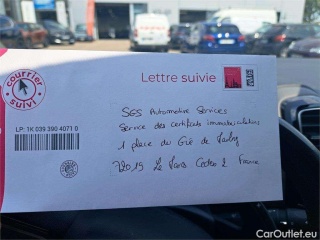 courrier
suivi
Lettre suivie
LP: 1K 039 390 4071 0
SGS Automotive Services
Service des certificats immatriculations
1 place du Gué de
72019 Le Mans Cedex 2 France
CarOutlet.eu